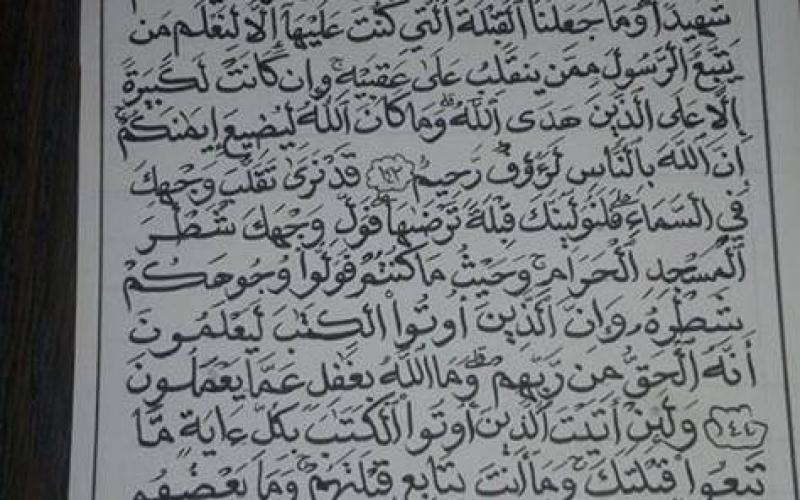 شَهِيدًا وَمَا جَعَلْنَا ٱلْقِبْلَةَ ٱلَّتِى كُنتَ عَلَيْهَآ إِلَّا لِنَعْلَمَ مَن
يَتَّبِعُ ٱلرَّسُولَ مِمَّن يَنقَلِبُ عَلَىٰ عَقِبَيْهِ وَإِن كَانَتْ لَكَبِيرَةً
إِلَّا عَلَى ٱلَّذِينَ هَدَى ٱللَّهُ وَمَا كَانَ ٱللَّهُ لِيُضِيعَ إِيمَٰنَكُمْ
إِنَّ ٱللَّهَ بِٱلنَّاسِ لَرَءُوفٌ رَّحِيمٌ ١٤٣ قَدْ نَرَىٰ تَقَلُّبَ وَجْهِكَ
فِى ٱلسَّمَآءِ فَلَنُوَلِّيَنَّكَ قِبْلَةً تَرْضَىٰهَا فَوَلِّ وَجْهَكَ شَطْرَ
ٱلْمَسْجِدِ ٱلْحَرَامِ وَحَيْثُ مَا كُنتُمْ فَوَلُّوا۟ وُجُوهَكُمْ
شَطْرَهُۥ وَإِنَّ ٱلَّذِينَ أُوتُوا۟ ٱلْكِتَٰبَ لَيَعْلَمُونَ
أَنَّهُ ٱلْحَقُّ مِن رَّبِّهِمْ وَمَا ٱللَّهُ بِغَٰفِلٍ عَمَّا يَعْمَلُونَ
١٤٤ وَلَئِنْ أَتَيْتَ ٱلَّذِينَ أُوتُوا۟ ٱلْكِتَٰبَ بِكُلِّ ءَايَةٍ مَّا
تَبِعُوا۟ قِبْلَتَكَ وَمَآ أَنتَ بِتَابِعٍ قِبْلَتَهُمْ وَمَا بَعْضُهُم